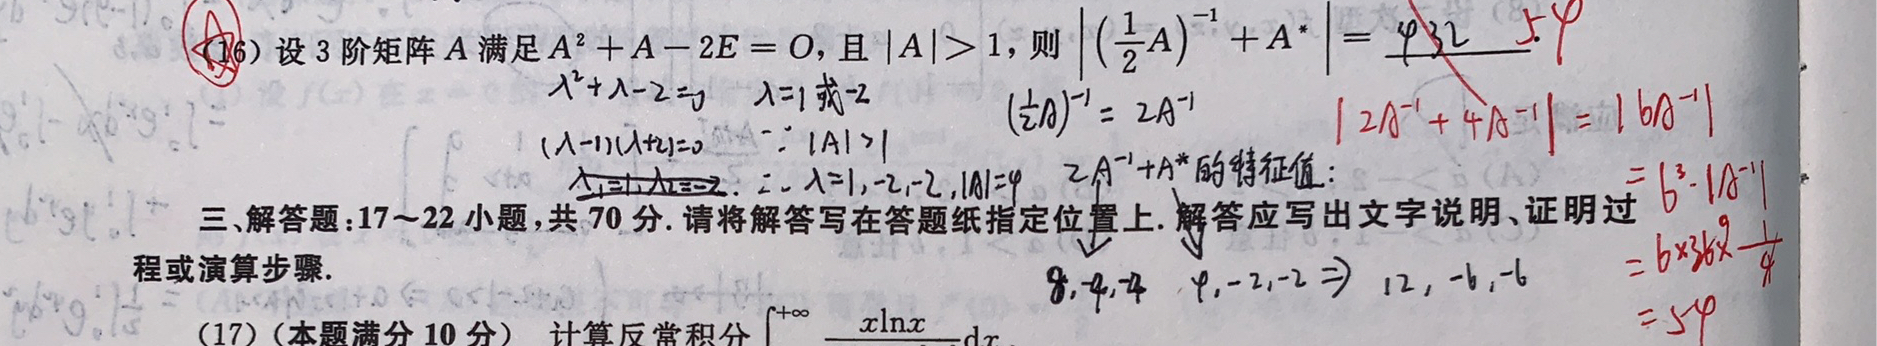 (16) 设 3 阶矩阵 A 满足 A² + A − 2E = O, 且 |A| > 1, 则 |(1/2 A)⁻¹ + A*| = 432 54
λ²+λ−2=0 λ=1或−2
(λ−1)(λ+2)=0 ∵ |A|>1
λ₁=1, λ₂=−2. ∴ λ=1,−2,−2, |A|=4
(1/2 A)⁻¹ = 2A⁻¹
2A⁻¹+A*的特征值:
8,−4,−4 4,−2,−2 ⇒ 12,−6,−6
|2A⁻¹+4A⁻¹| = |6A⁻¹|
= 6³·|A⁻¹|
= 6×36×1/4 9
= 54
三、解答题:17~22 小题,共 70 分. 请将解答写在答题纸指定位置上. 解答应写出文字说明、证明过
程或演算步骤.
(17) (本题满分 10 分) 计算反常积分 ∫ +∞ xlnx dx